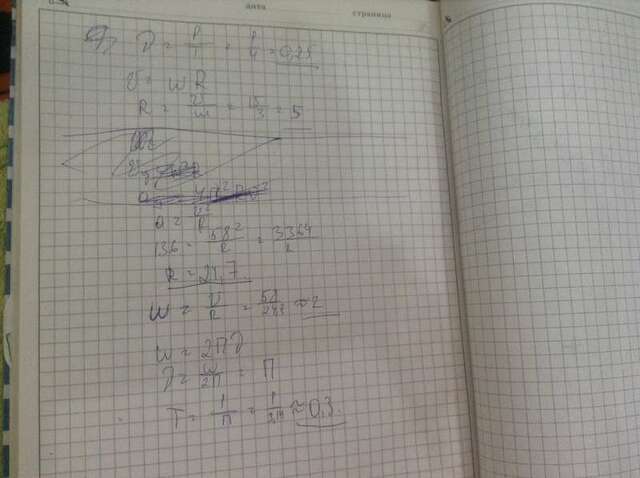 дата
страница
ν = 1/T = 1/4 = 0,25
v = wR
R = v/w = 15/3 = 5
a = v²/R
136 = 58²/R = 3364/R
R = 24,7
w = v/R = 58/24,7 ≈ 2
w = 2πν
ν = w/2π = π
T = 1/π = 1/3,14 ≈ 0,3